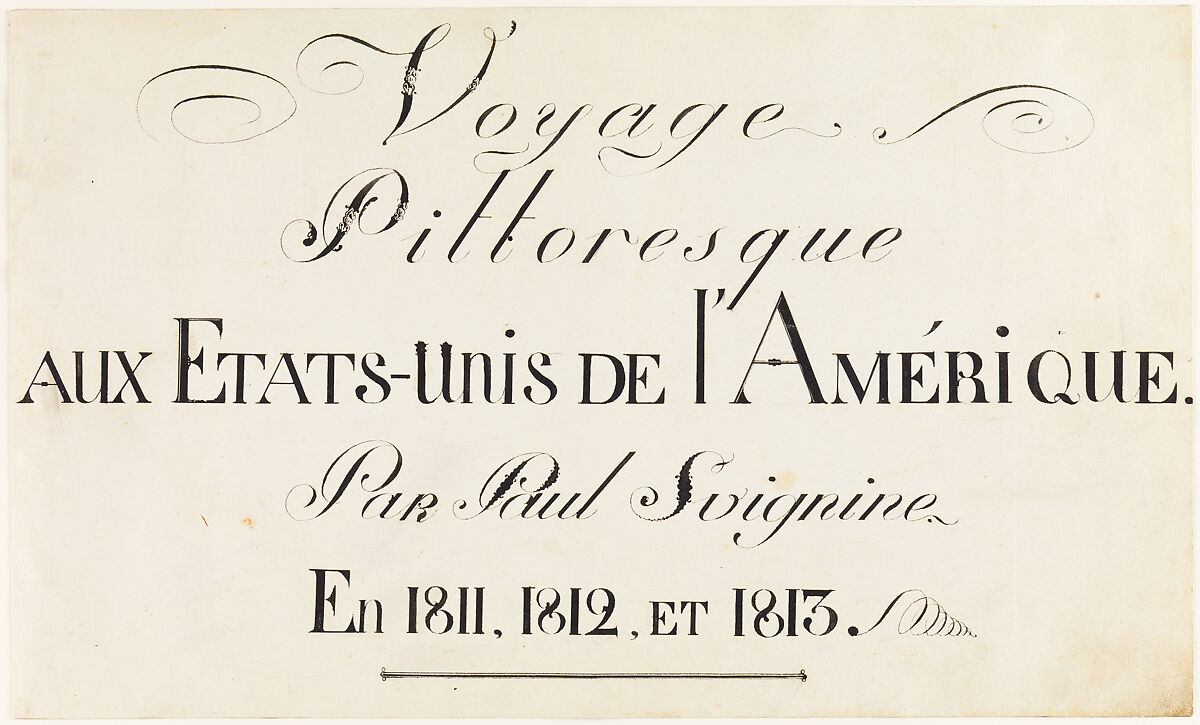 Voyage
Pittoresque
AUX ETATS-UNIS DE l'AMÉRIQUE.
PAR Paul Svignine.
En 1811, 1812, ET 1813.